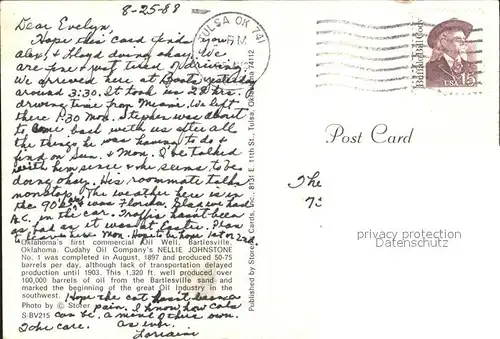 8-25-88
Dear Evelyn,
Hope this card finds you,
Alex, & Floyd doing okay. We
are fine - just tired of driving.
We arrived here at Boots yesterday
around 3:30. It took us 28 hrs. of
driving time from Miami. We left
there 1:30 Mon. Stephen was about
to come back with us after all
the things he was having to do &
find on Sun. & Mon. I've talked
with him since & he seems to be
doing okay. His roommate talks
nonstop. The weather here is in
the 90's as was Florida. Glad we had
A.C. in the car. Traffic hasn't been
as bad as it was at Easter. Plan
to leave here Mon. Hope to be home 1st or 2nd.
Oklahoma's first commercial Oil Well, Bartlesville,
Oklahoma. Cudahy Oil Company's NELLIE JOHNSTONE
No. 1 was completed in August, 1897 and produced 50-75
barrels per day, although lack of transportation delayed
production until 1903. This 1,320 ft. well produced over
100,000 barrels of oil from the Bartlesville sand and
marked the beginning of the great Oil Industry in the
southwest.
Hope the cat hasn't been a
Photo by © Storer
pain. I know how cats
S-BV215
can be, a mind of their own.
Take care.
As ever,
Lorraine
Published by Storer Cards, Inc., 8731 E. 11th St., Tulsa, Oklahoma 74112
TULSA OK 741
PM
Buffalo Bill Cody
USA 15
Post Card
The
73
passion for collection
ansichtskarten-center.de